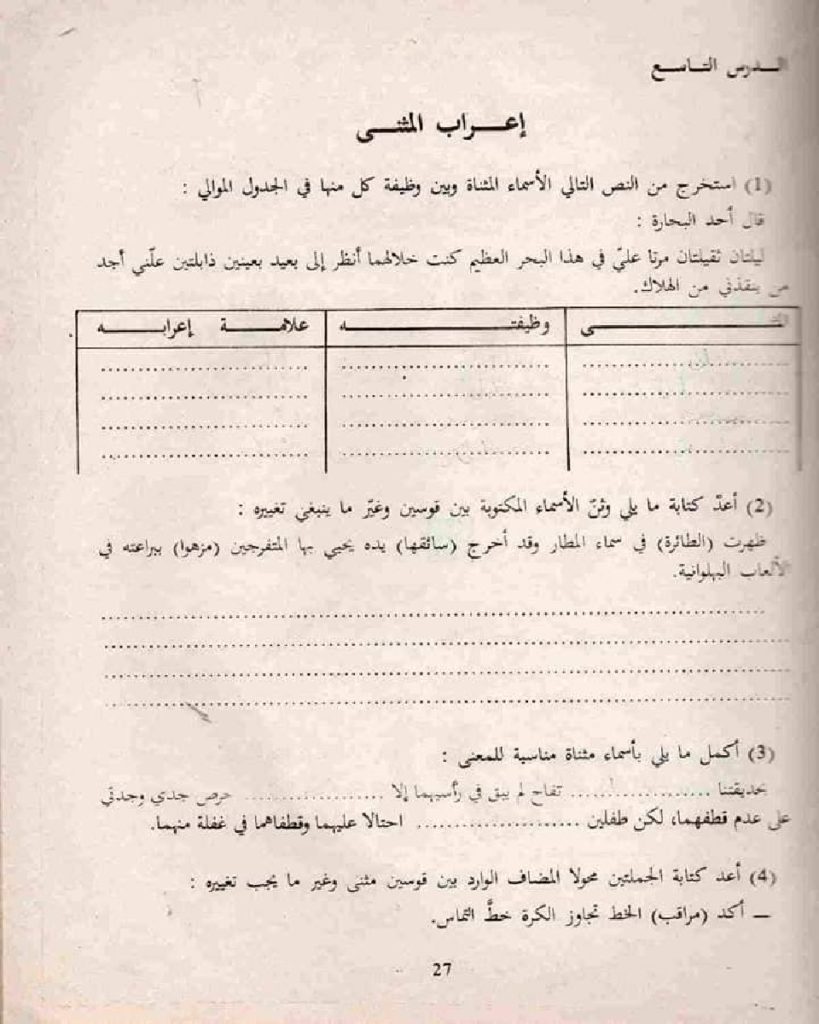 الدرس التاسع
إعراب المثنى
(1) استخرج من النص التالي الأسماء المثناة وبين وظيفة كل منها في الجدول الموالي :
قال أحد البحارة :
ليلتان ثقيلتان مرتا عليّ في هذا البحر العظيم كنت خلالهما أنظر إلى بعيد بعينين ذابلتين علّني أجد
من ينقذني من الهلاك.
وظيفته علامة إعرابه
(2) أعدّ كتابة ما يلي وثنّ الأسماء المكتوبة بين قوسين وغيّر ما ينبغي تغييره :
ظهرت (الطائرة) في سماء المطار وقد أخرج (سائقها) يده يحيي بها المتفرجين (مزهوا) ببراعته في
الألعاب البهلوانية.
(3) أكمل ما يلي بأسماء مثناة مناسبة للمعنى :
بحديقتنا .................. تفاح لم يبق في رأسيهما إلا .................. حرص جدي وجدتي
على عدم قطفهما، لكن طفلين .................. احتالا عليهما وقطفاهما في غفلة منهما.
(4) أعد كتابة الجملتين محولا المضاف الوارد بين قوسين مثنى وغير ما يجب تغييره :
— أكد (مراقب) الخط تجاوز الكرة خطَّ التماس.
27